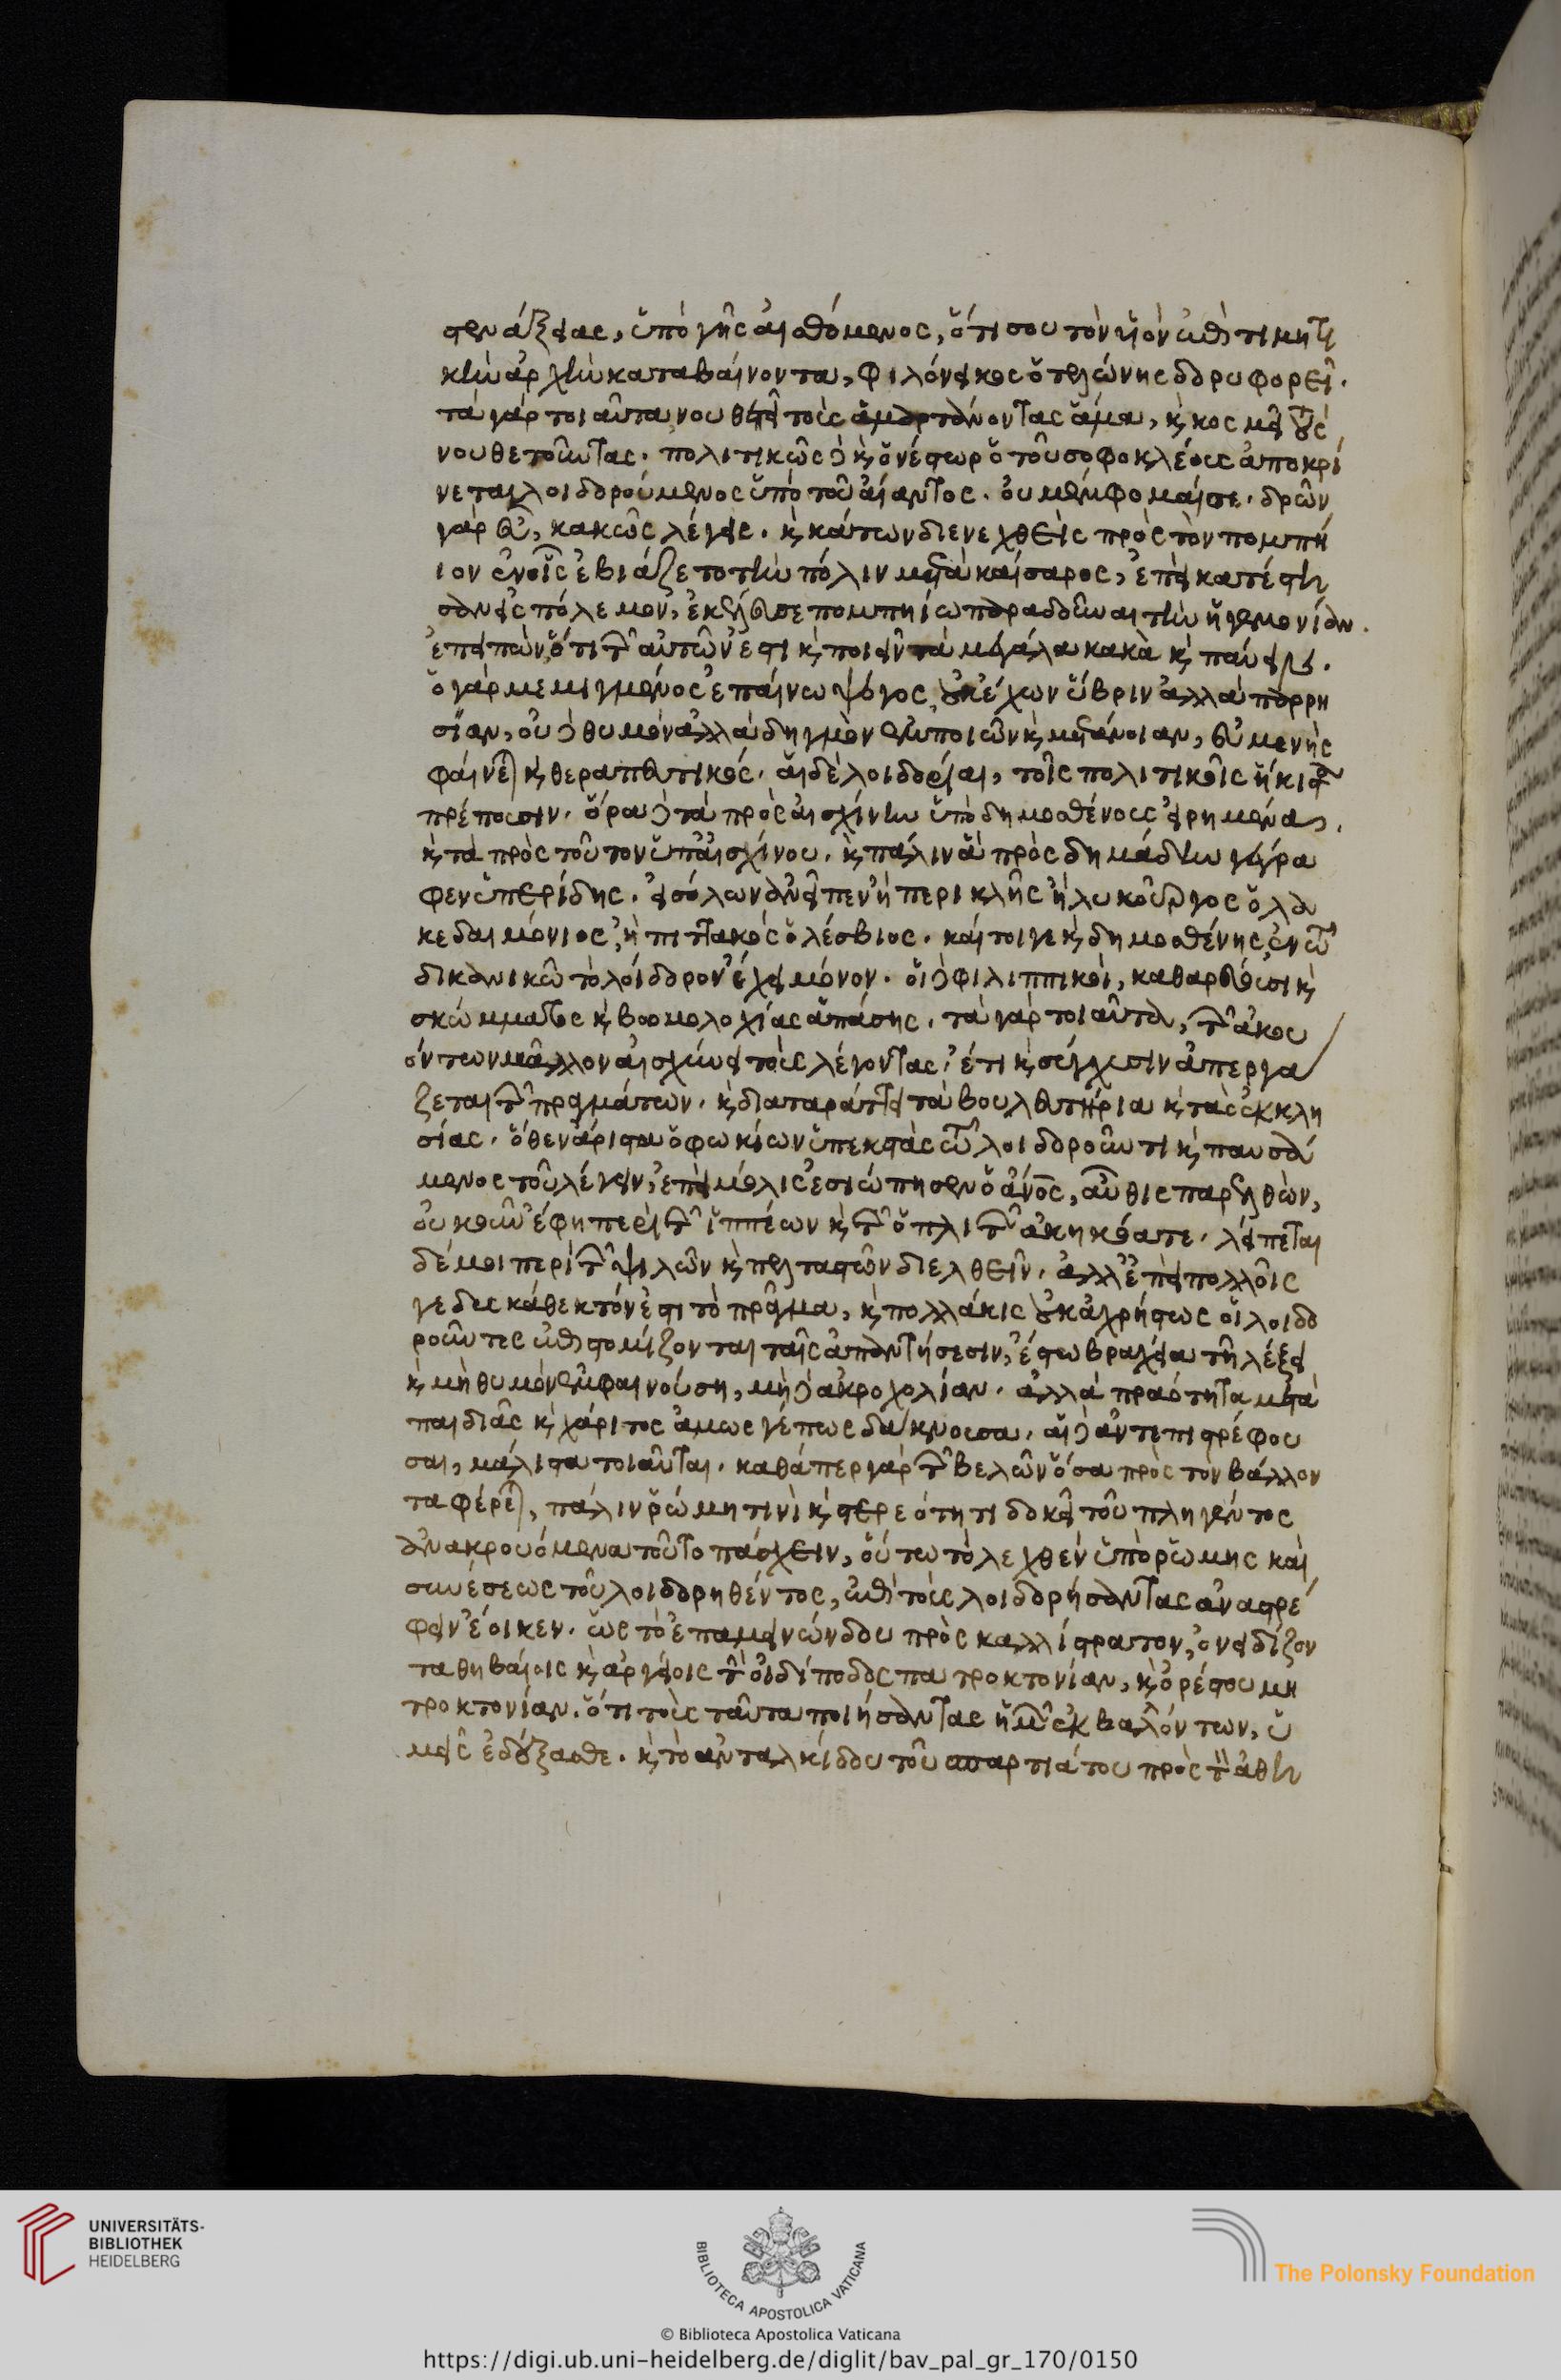 στενάξειας, ὑπὸ γῆς αἰσθόμενος, ὅτι σου τὸν υἱὸν ἐπὶ τιμητι
κὴν ἀρχὴν καταβαίνοντα, φιλόνεικος ὁ τελώνης δορυφορεῖ.
τὰ γὰρ τοιαῦτα νουθετεῖ τοὺς ἁμαρτάνοντας ἅμα, κ κοσμεῖ τοὺς
νουθετοῦντας. πολιτικῶς δὲ κ ὁ νέστωρ ὁ τοῦ σοφοκλέους ἀποκρί
νεται λοιδορούμενος ὑπὸ τοῦ αἴαντος. οὐ μέμφομαί σε. δρῶν
γὰρ εὖ, κακῶς λέγεις. κ κάτων διενεχθεὶς πρὸς τὸν πομπή
ιον ἐν οἷς ἐβιάζετο τὴν πόλιν μετὰ καίσαρος, ἐπεὶ κατέστη
σαν εἰς πόλεμον, ἐκέλευσε πομπηίω παραδοῦναι τὴν ἡγεμονίαν.
ἐπειπὼν, ὅτι τῶν αὐτῶν ἐστι κ ποιεῖν τὰ μεγάλα κακὰ κ παύειν.
ὁ γὰρ μεμιγμένος ἐπαίνω ψόγος, οὐκ ἔχων ὕβριν ἀλλὰ παρρη
σίαν, οὐδὲ θυμὸν ἀλλὰ δηγμὸν ἐμποιῶν κ μετάνοιαν, εὐμενὴς
φαίνεται κ θεραπευτικός. αἱ δὲ λοιδορίαι, τοῖς πολιτικοῖς ἥκιστα
πρέπουσιν. ὅρα δὲ τὰ πρὸς αἰσχίνην ὑπὸ δημοσθένους εἰρημένα,
κ τὰ πρὸς τοῦτον ὑπ' αἰσχίνου. κ πάλιν ἃ πρὸς δημάδην γέγρα
φεν ὑπερίδης. εἰ σόλων ἂν εἶπεν ἢ περικλῆς ἢ λυκοῦργος ὁ λα
κεδαιμόνιος, ἢ πιττακὸς ὁ λέσβιος. καίτοι γε κ δημοσθένης ἐν τῶ
δικανικῶ τὸ λοίδορον ἔχει μόνον. οἱ δὲ φιλιππικοὶ, καθαρεύουσι κ
σκώμματος κ βωμολοχίας ἁπάσης. τὰ γὰρ τοιαῦτα, τῶν ἀκου
όντων μᾶλλον αἰσχύνει τοὺς λέγοντας. ἔτι κ σύγχυσιν ἀπεργά
ζεται τῶν πραγμάτων. κ διαταράττει τὰ βουλευτήρια κ τὰς ἐκκλη
σίας. ὅθεν ἄριστα ὁ φωκίων ὑπεκστὰς τῶ λοιδοροῦντι κ παυσά
μενος τοῦ λέγειν, ἐπεὶ μόλις ἐσιώπησεν ὁ ἄνος, αὖθις παρελθὼν,
οὐκοῦν ἔφη περὶ τῶν ἱππέων κ τῶν ὁπλιτῶν ἀκηκόατε. λείπεται
δέ μοι περὶ τῶν ψιλῶν κ πελταστῶν διελθεῖν. ἀλλ' ἐπεὶ πολλοῖς
γε δυσκάθεκτόν ἐστι τὸ πρᾶγμα, κ πολλάκις οὐκ ἀχρήστως οἱ λοιδο
ροῦντες ἐπιστομίζονται ταῖς ἀπαντήσεσιν, ἔστω βραχεῖα τῆ λέξει
κ μὴ θυμὸν ἐμφαινούση, μὴ δὲ ἀκροχολίαν. ἀλλὰ πραότητα μετὰ
παιδιᾶς κ χάριτος ἄμως γέ πως δάκνουσα. αἱ δὲ ἀντεπιστρέφου
σαι, μάλιστα τοιαῦται. καθάπερ γὰρ τῶν βελῶν ὅσα πρὸς τὸν βάλλον
τα φέρεται, πάλιν ῥώμη τινὶ κ στερεότητι δοκεῖ τοῦ πληγέντος
ἀνακρουόμενα τοῦτο πάσχειν, οὕτω τὸ λεχθὲν ὑπὸ ῥώμης καὶ
συνέσεως τοῦ λοιδορηθέντος, ἐπὶ τοὺς λοιδορήσαντας ἀναστρέ
φειν ἔοικεν. ὡς τὸ ἐπαμεινώνδου πρὸς καλλίστρατον, ὀνειδίζον
τα θηβαίοις κ ἀργείοις τὴν οἰδίποδος πατροκτονίαν, κ ὀρέστου μη
τροκτονίαν. ὅτι τοὺς ταῦτα ποιήσαντας ἡμῶν ἐκβαλόντων, ὑ
μεῖς ἐδέξασθε. κ τὸ ἀνταλκίδου τοῦ σπαρτιάτου πρὸς τὸν ἀθη
UNIVERSITÄTS-
BIBLIOTHEK
HEIDELBERG
BIBLIOTECA APOSTOLICA VATICANA
The Polonsky Foundation
© Biblioteca Apostolica Vaticana
https://digi.ub.uni-heidelberg.de/diglit/bav_pal_gr_170/0150